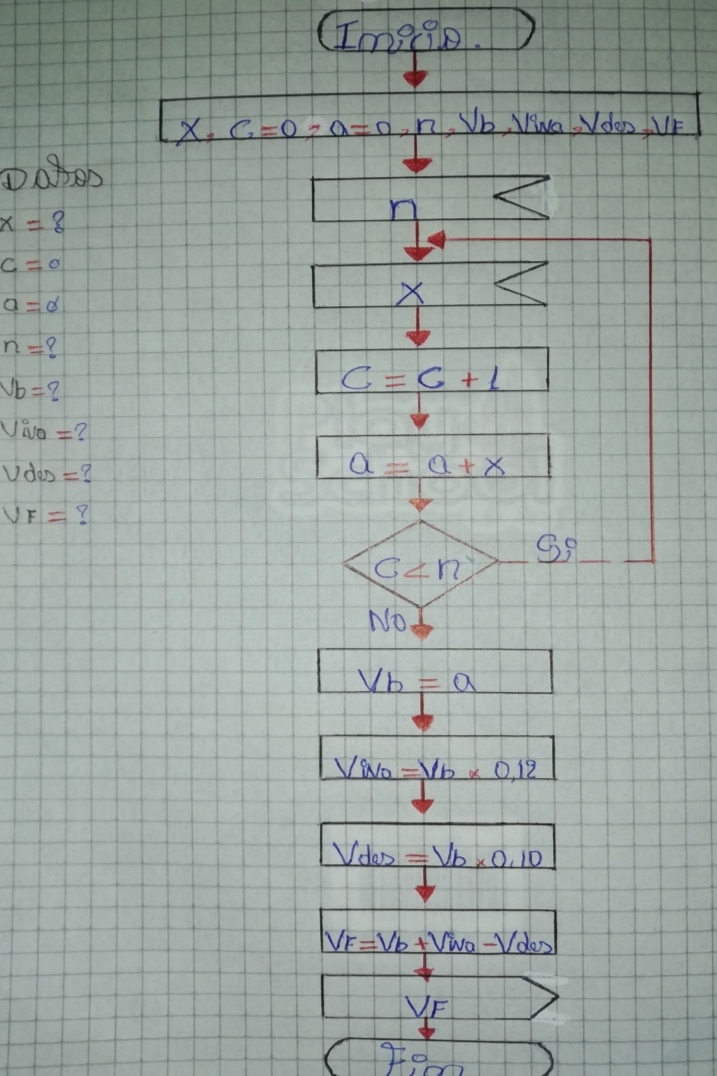 Inicio.
X, C=0, a=0, n, Vb, Viva, Vdes, VF
Datos
x = ?
c = 0
a = 0
n = ?
Vb = ?
Viva = ?
Vdes = ?
VF = ?
n
X
C = C + 1
a = a + x
C < n
Si
No
Vb = a
Viva = Vb x 0,12
Vdes = Vb x 0,10
VF = Vb + Viva - Vdes
VF
Fin